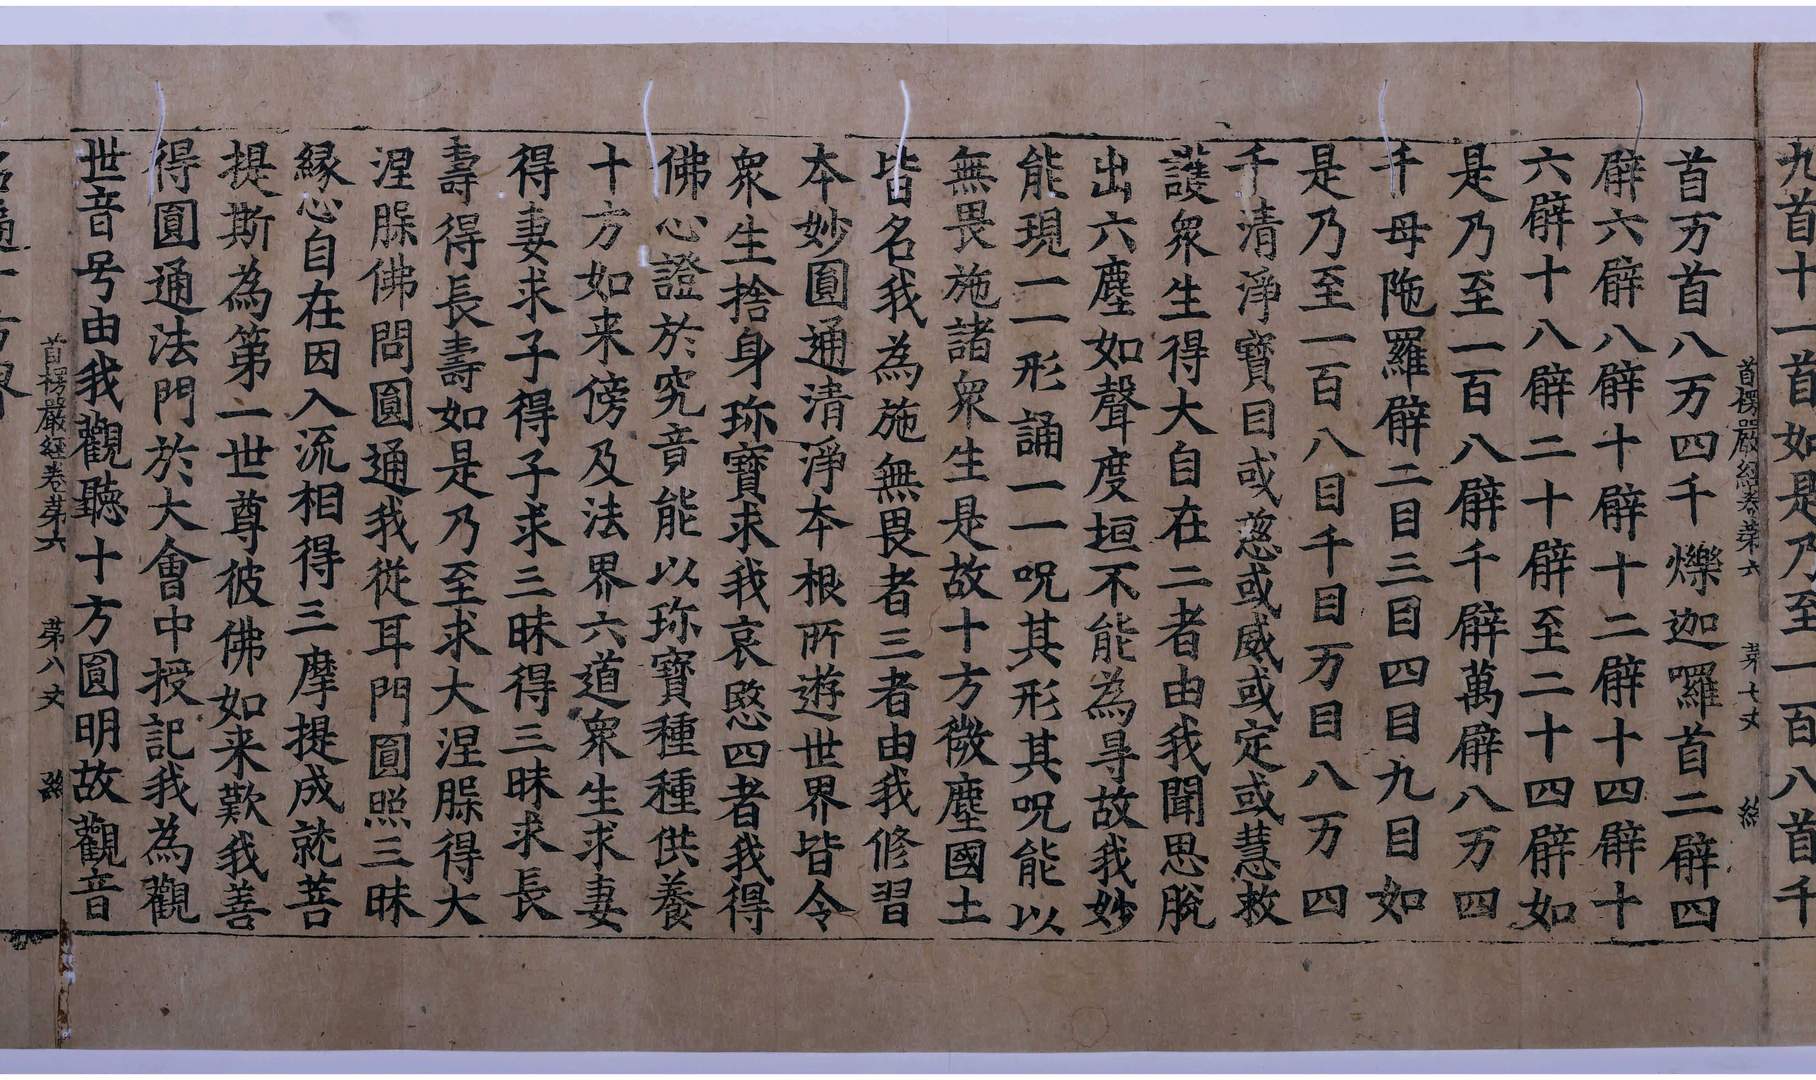 九首十一首如是乃至一百八首千
首楞嚴經卷苐六 苐七丈
首万首八万四千爍迦囉首二臂四
臂六臂八臂十臂十二臂十四臂十
六臂十八臂二十臂至二十四臂如
是乃至一百八臂千臂萬臂八万四
千母陁羅臂二目三目四目九目如
是乃至一百八目千目万目八万四
千清淨寶目或慈或威或定或慧救
護衆生得大自在二者由我聞思脫
出六塵如聲度垣不能為㝵故我妙
能現一一形誦一一呪其形其呪能以
無畏施諸衆生是故十方微塵國土
皆名我為施無畏者三者由我修習
本妙圓通清淨本根所遊世界皆令
衆生捨身珎寶求我哀愍四者我得
佛心證於究竟能以珎寶種種供養
十方如来傍及法界六道衆生求妻
得妻求子得子求三昧得三昧求長
壽得長壽如是乃至求大涅槃得大
涅槃佛問圓通我從耳門圓照三昧
緣心自在因入流相得三摩提成就菩
提斯為第一世尊彼佛如来歎我善
得圓通法門於大會中授記我為觀
世音号由我觀聽十方圓明故觀音
首楞嚴經卷苐六 苐八丈
名遍十方界